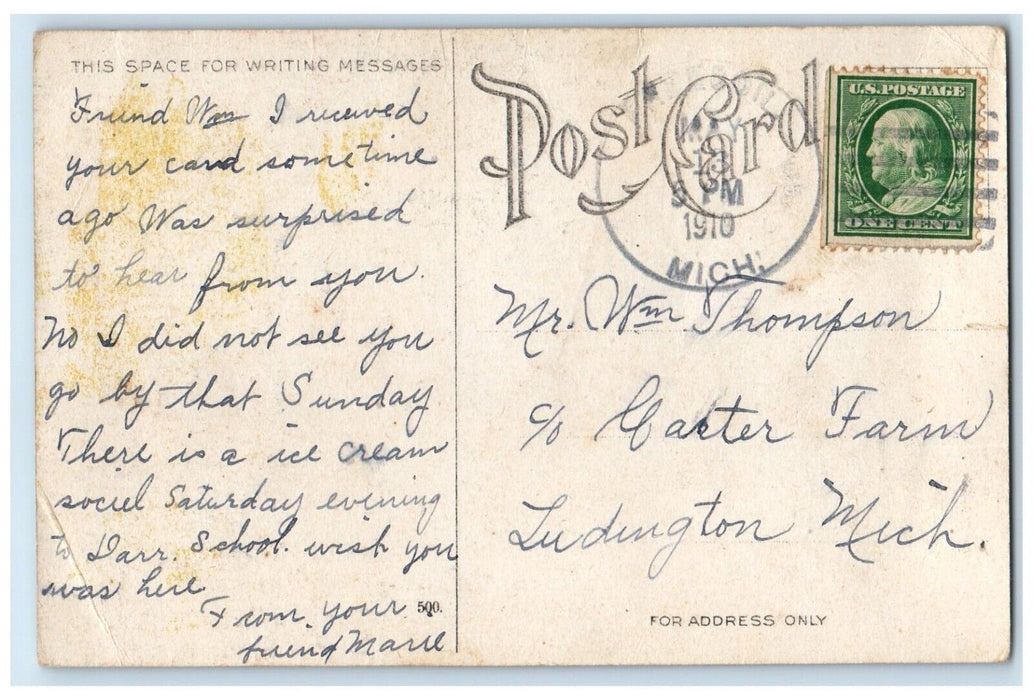 THIS SPACE FOR WRITING MESSAGES
Friend Wm I received
your card sometime
ago Was surprised
to hear from you.
No I did not see you
go by that Sunday.
There is a ice cream
sociel Saturday evening
to Darr. School. wish you
was here
From your
friend Marie
500.
Post Card
MAY
5 PM
1910
MICH.
U.S. POSTAGE
ONE CENT
Mr. Wm Thompson
c/o Carter Farm
Ludington Mich.
FOR ADDRESS ONLY